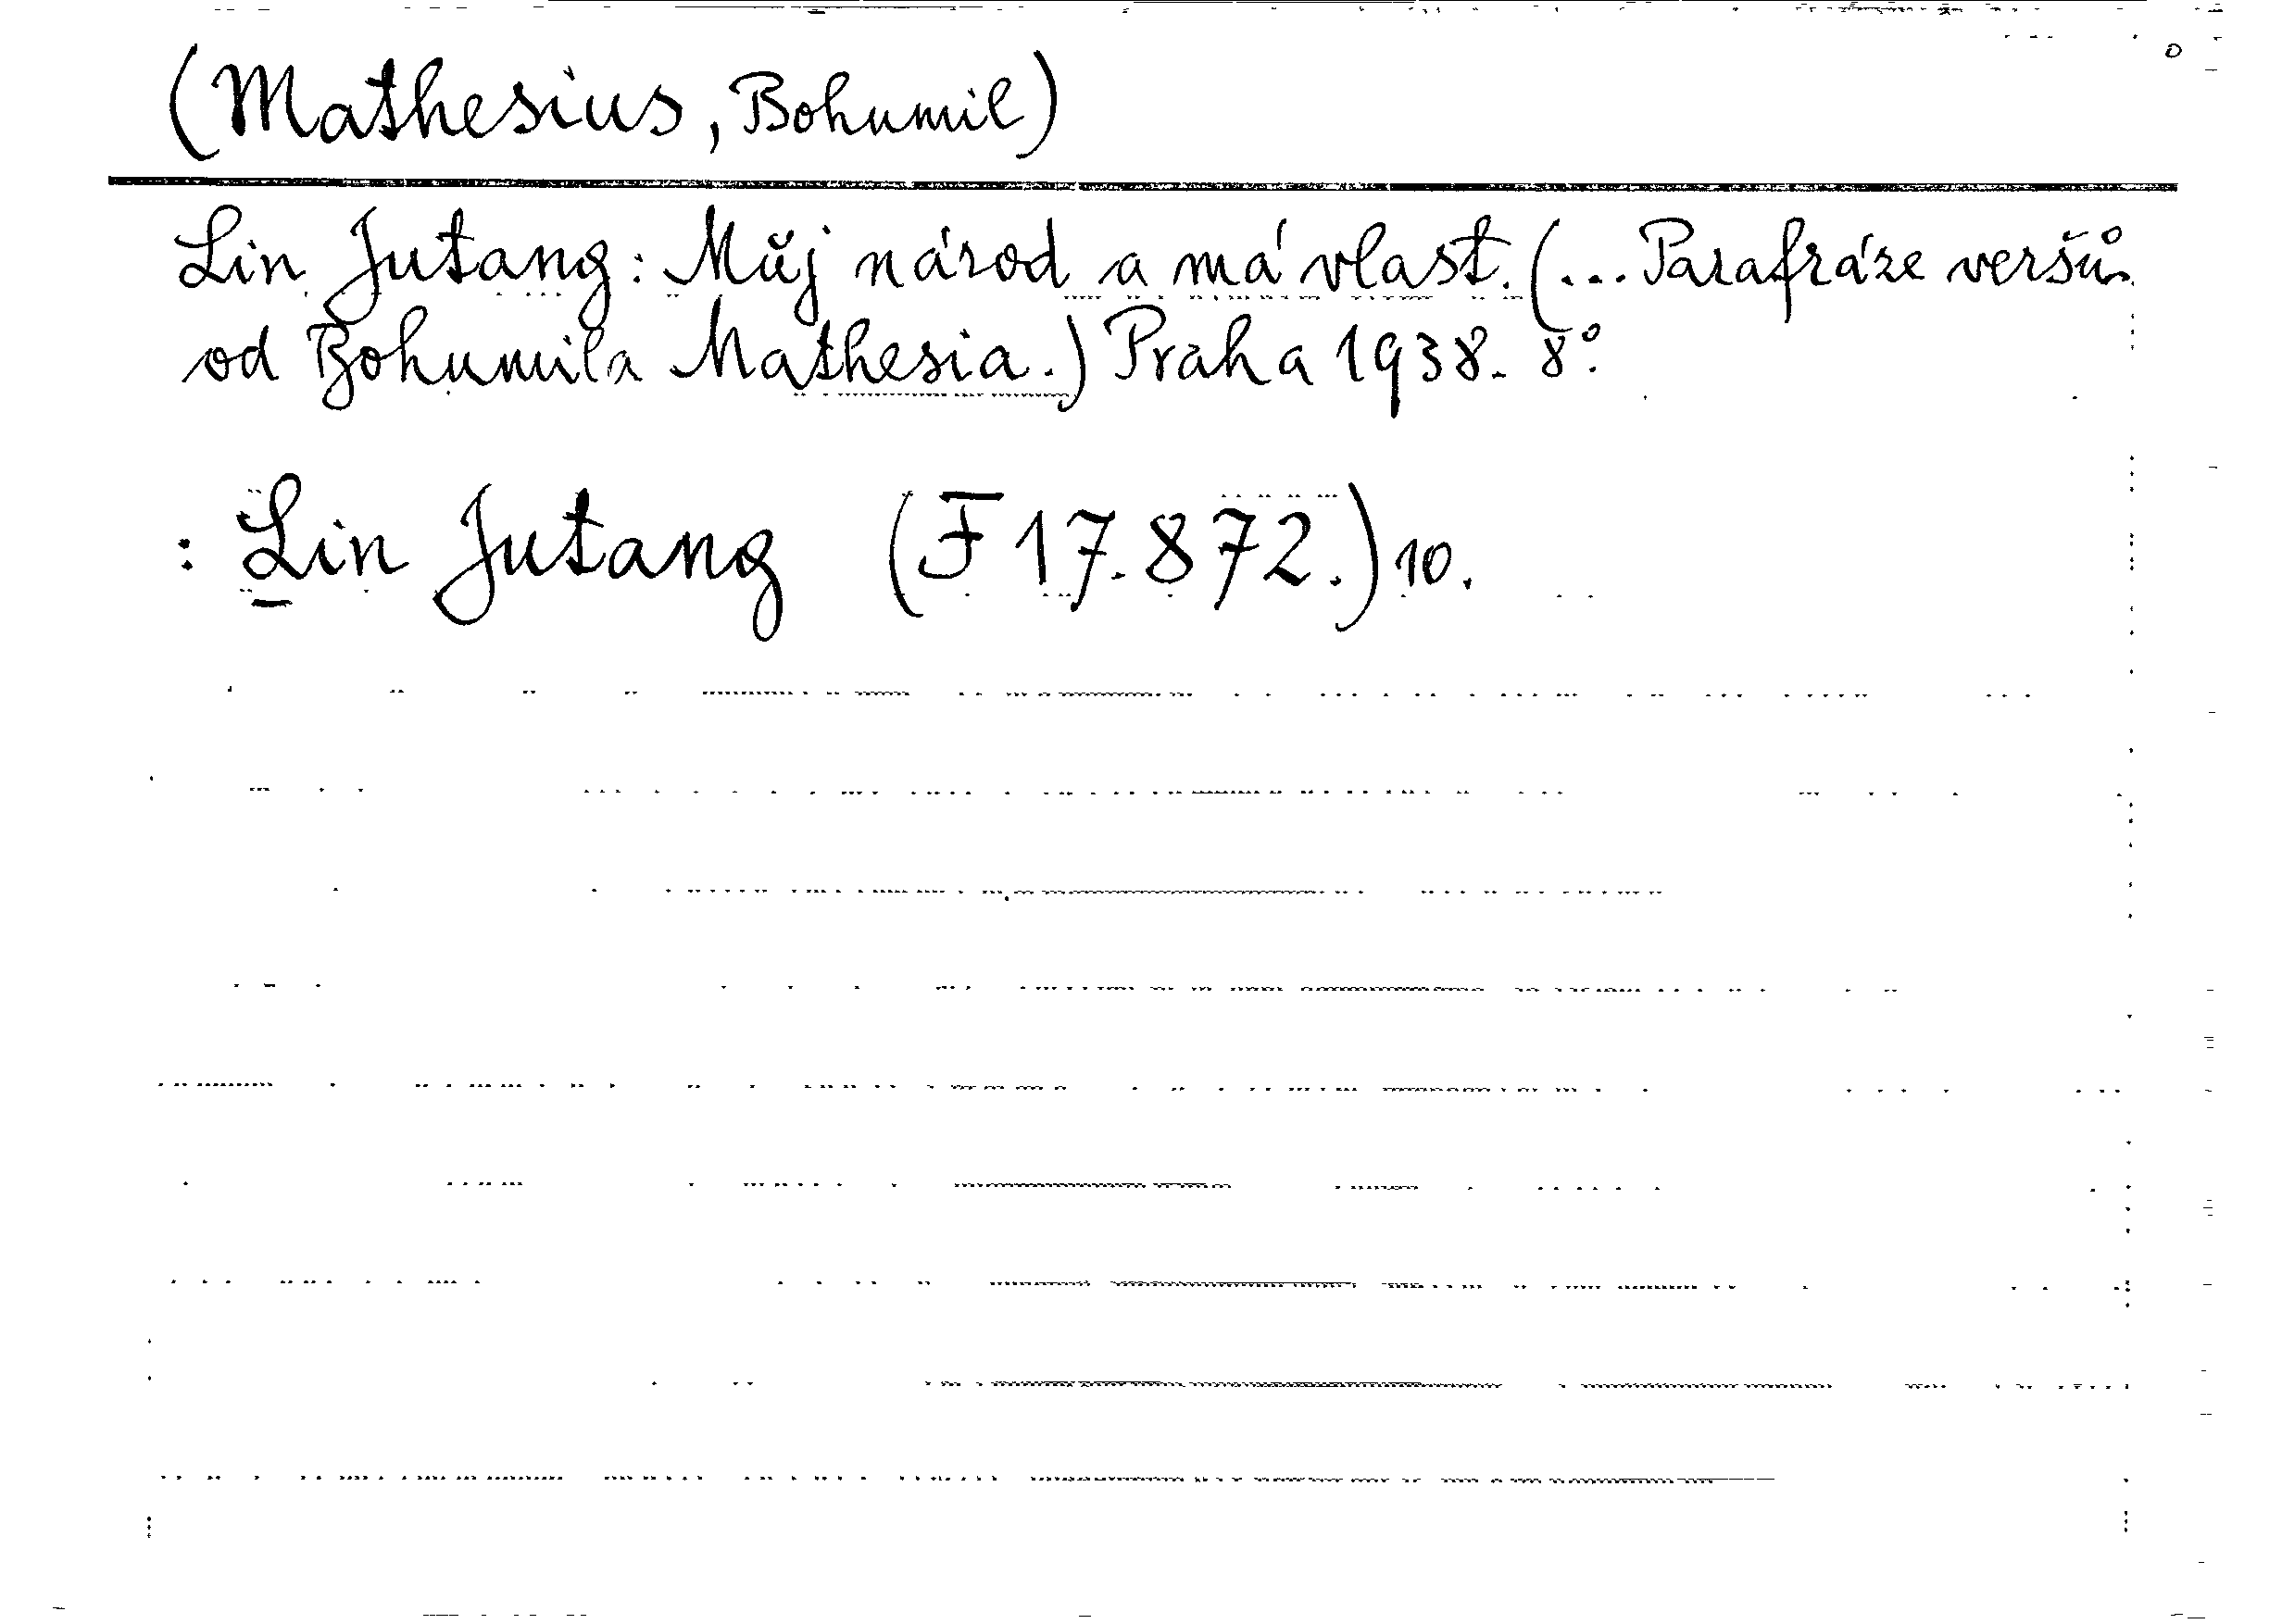 (Mathesius, Bohumil)
Lin Jutang: Můj národ a má vlast. (... Parafráze veršů
od Bohumila Mathesia.) Praha 1938. 8°.
: Lin Jutang (F 17.872.) 10.